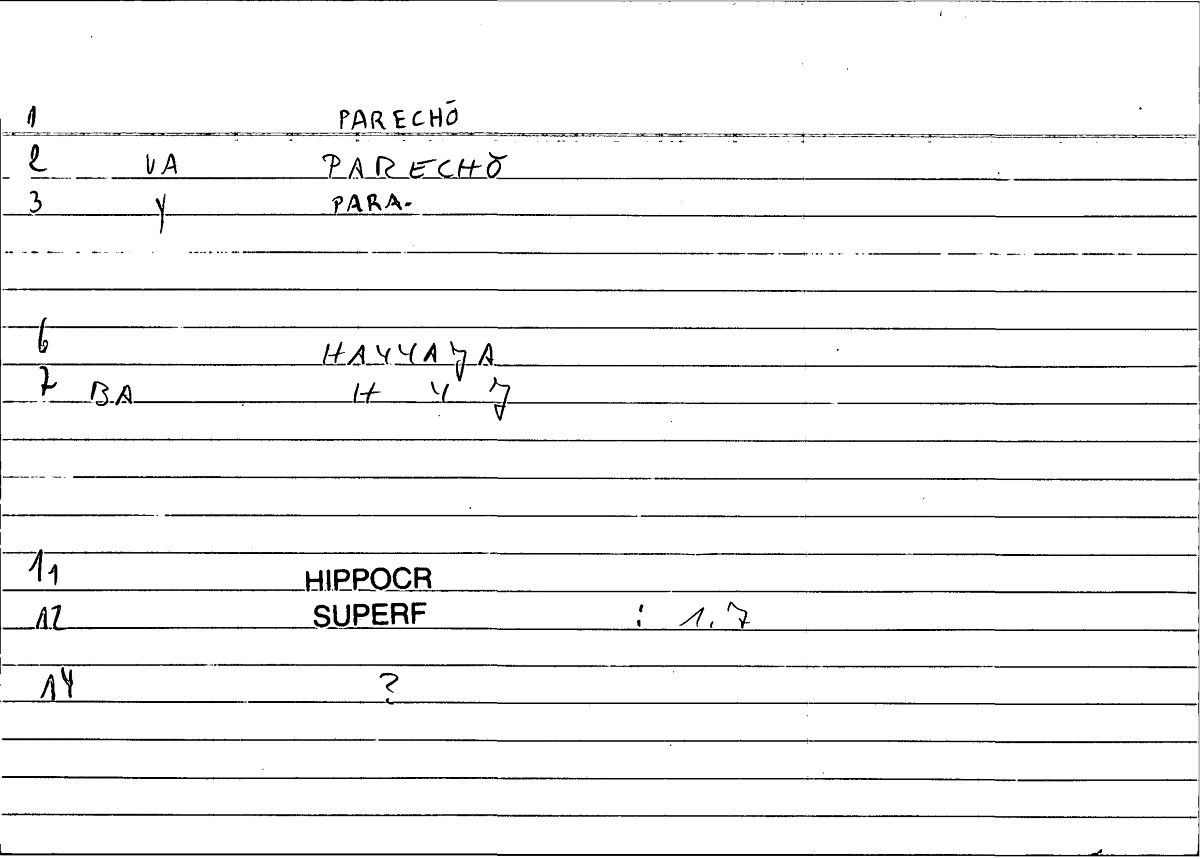 1 PARECHŌ
2 VA PARECHŌ
3 Y PARA-
6 HAYYAʾA
7 BA H Y ʾ
11 HIPPOCR
12 SUPERF : 1.7
14 ?